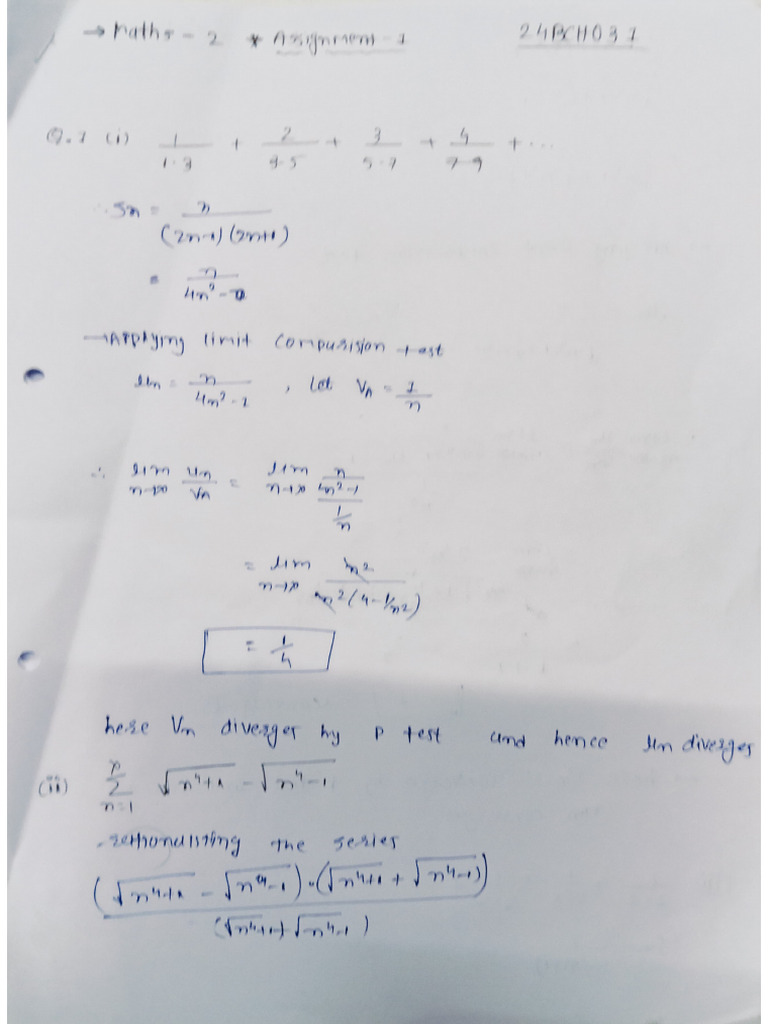 → Maths - 2 * Assignment - 1 24BCH037
Q.1 (i) 1/1·3 + 2/3·5 + 3/5·7 + 4/7·9 + ...
∴ Sn = n/(2n-1)(2n+1)
= n/4n²-1
→ Applying limit compurision test
un = n/4n²-1 , let Vn = 1/n
∴ lim n→∞ un/Vn = lim n→∞ (n/4n²-1)/(1/n)
= lim n→∞ n²/n²(4-1/n²)
= 1/4
here Vn diverges by P test und hence un diverges
(ii) ∞ Σ n=1 √n⁴+1 - √n⁴-1
the series
(√n⁴+1 - √n⁴-1)·(√n⁴+1 + √n⁴-1)/(√n⁴+1+√n⁴-1)